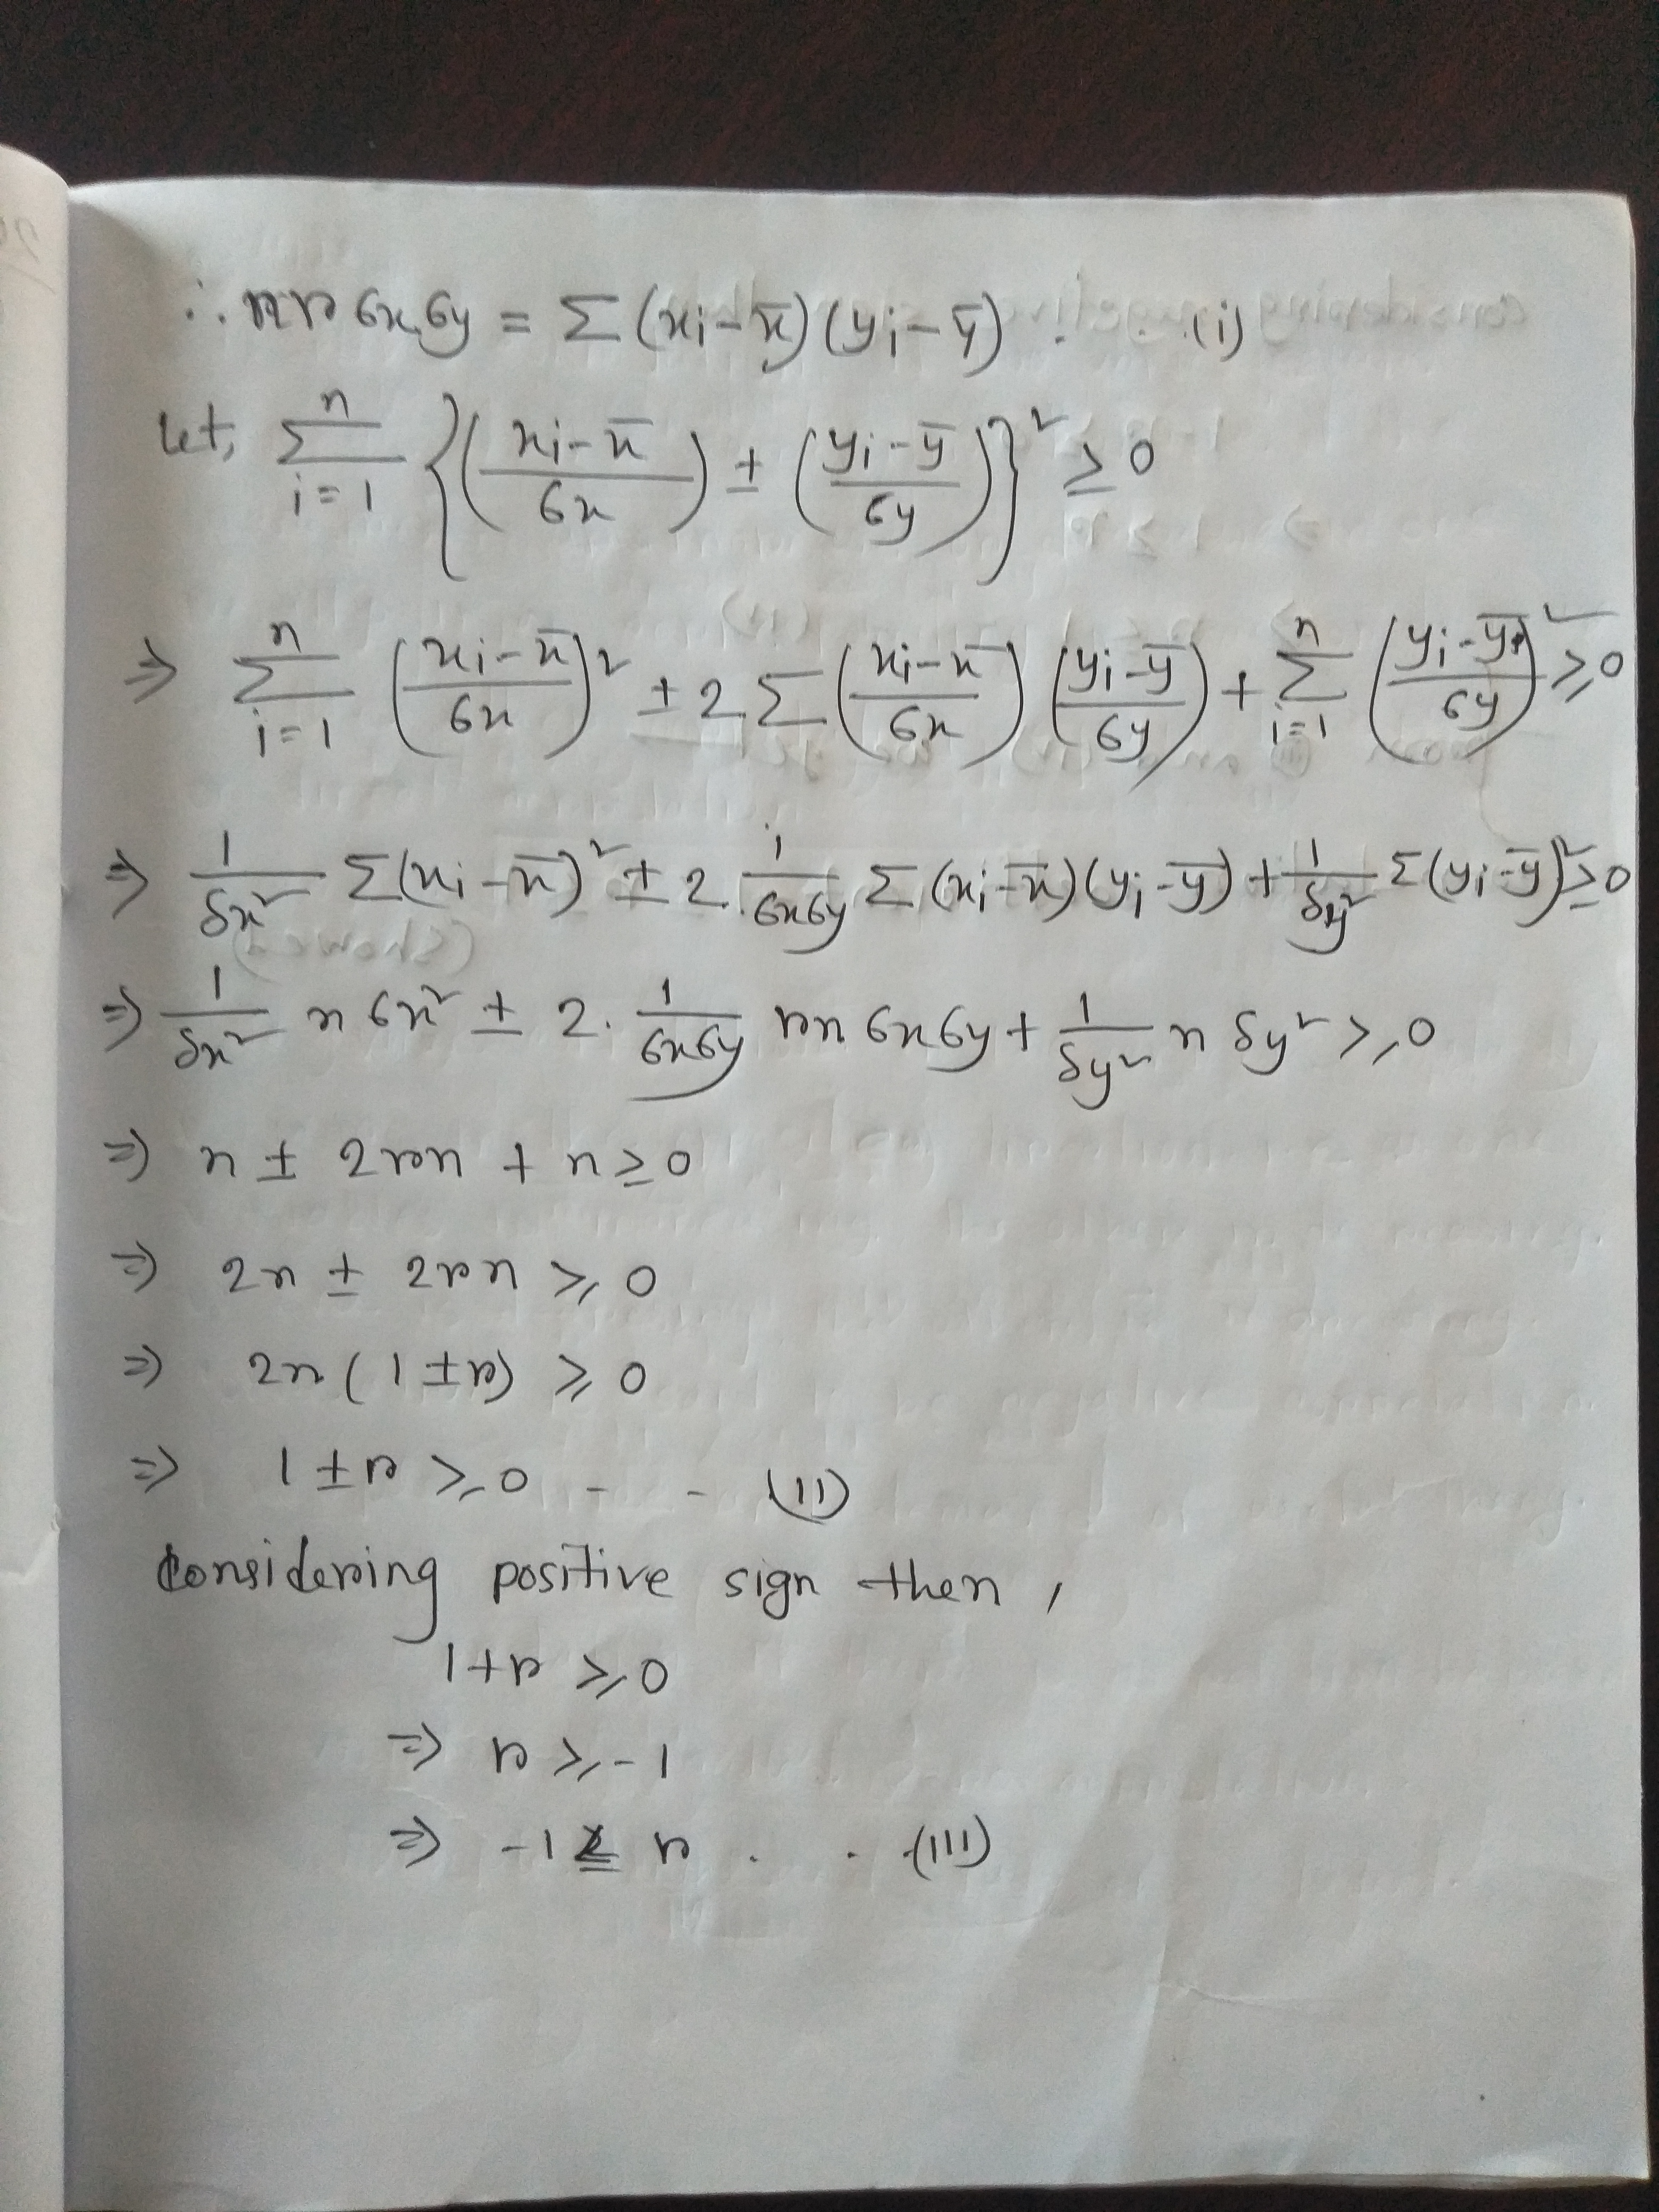 ∴ nr σx.σy = Σ(xi-x̄)(yi-ȳ) . . .(i)
Let, Σ_{i=1}^{n} {((xi-x̄)/σx) ± ((yi-ȳ)/σy)}² ≥ 0
⇒ Σ_{i=1}^{n} ((xi-x̄)/σx)² ± 2Σ((xi-x̄)/σx)((yi-ȳ)/σy) + Σ_{i=1}^{n} ((yi-ȳ)/σy)² ≥ 0
⇒ 1/σx² Σ(xi-x̄)² ± 2. 1/σxσy Σ(xi-x̄)(yi-ȳ) + 1/σy² Σ(yi-ȳ)² ≥ 0
⇒ 1/σx² n σx² ± 2. 1/σxσy rn σxσy + 1/σy² n σy² ≥ 0
⇒ n ± 2rn + n ≥ 0
⇒ 2n ± 2rn ≥ 0
⇒ 2n(1±r) ≥ 0
⇒ 1±r ≥ 0 - - (II)
Considering positive sign then,
1+r ≥ 0
⇒ r ≥ -1
⇒ -1 ≤ r . . .(III)